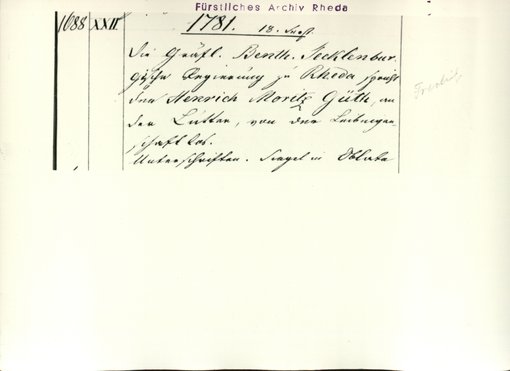 Fürstliches Archiv Rheda
1688 XXII 1781. 13. Sept.
Die Gräfl. Benth. Tecklenbur.
gische Regierung zu Rheda spricht
den Henrich Moritz Güth, an
der Lutter, von der Leibeigen-
schaft los.
Unterschriften. Siegel in Oblate